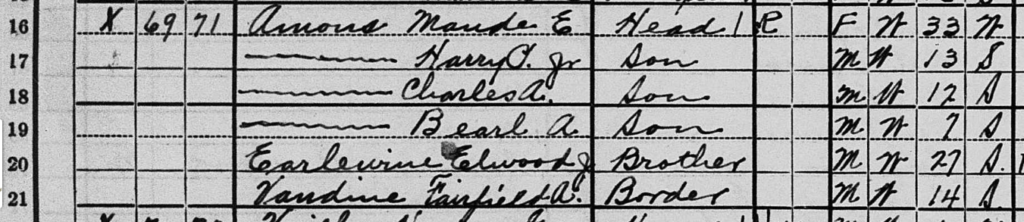 16 X 69 71 Amous Maude E Head 1 R F W 33 W
17 ——— Harry P. Jr Son M W 13 S
18 ——— Charles A. Son M W 12 S
19 ——— Bearl A Son M W 7 S
20 Earlewine Elwood J Brother M W 27 S.
21 Vandine Fairfield A. Border M W 14 S.